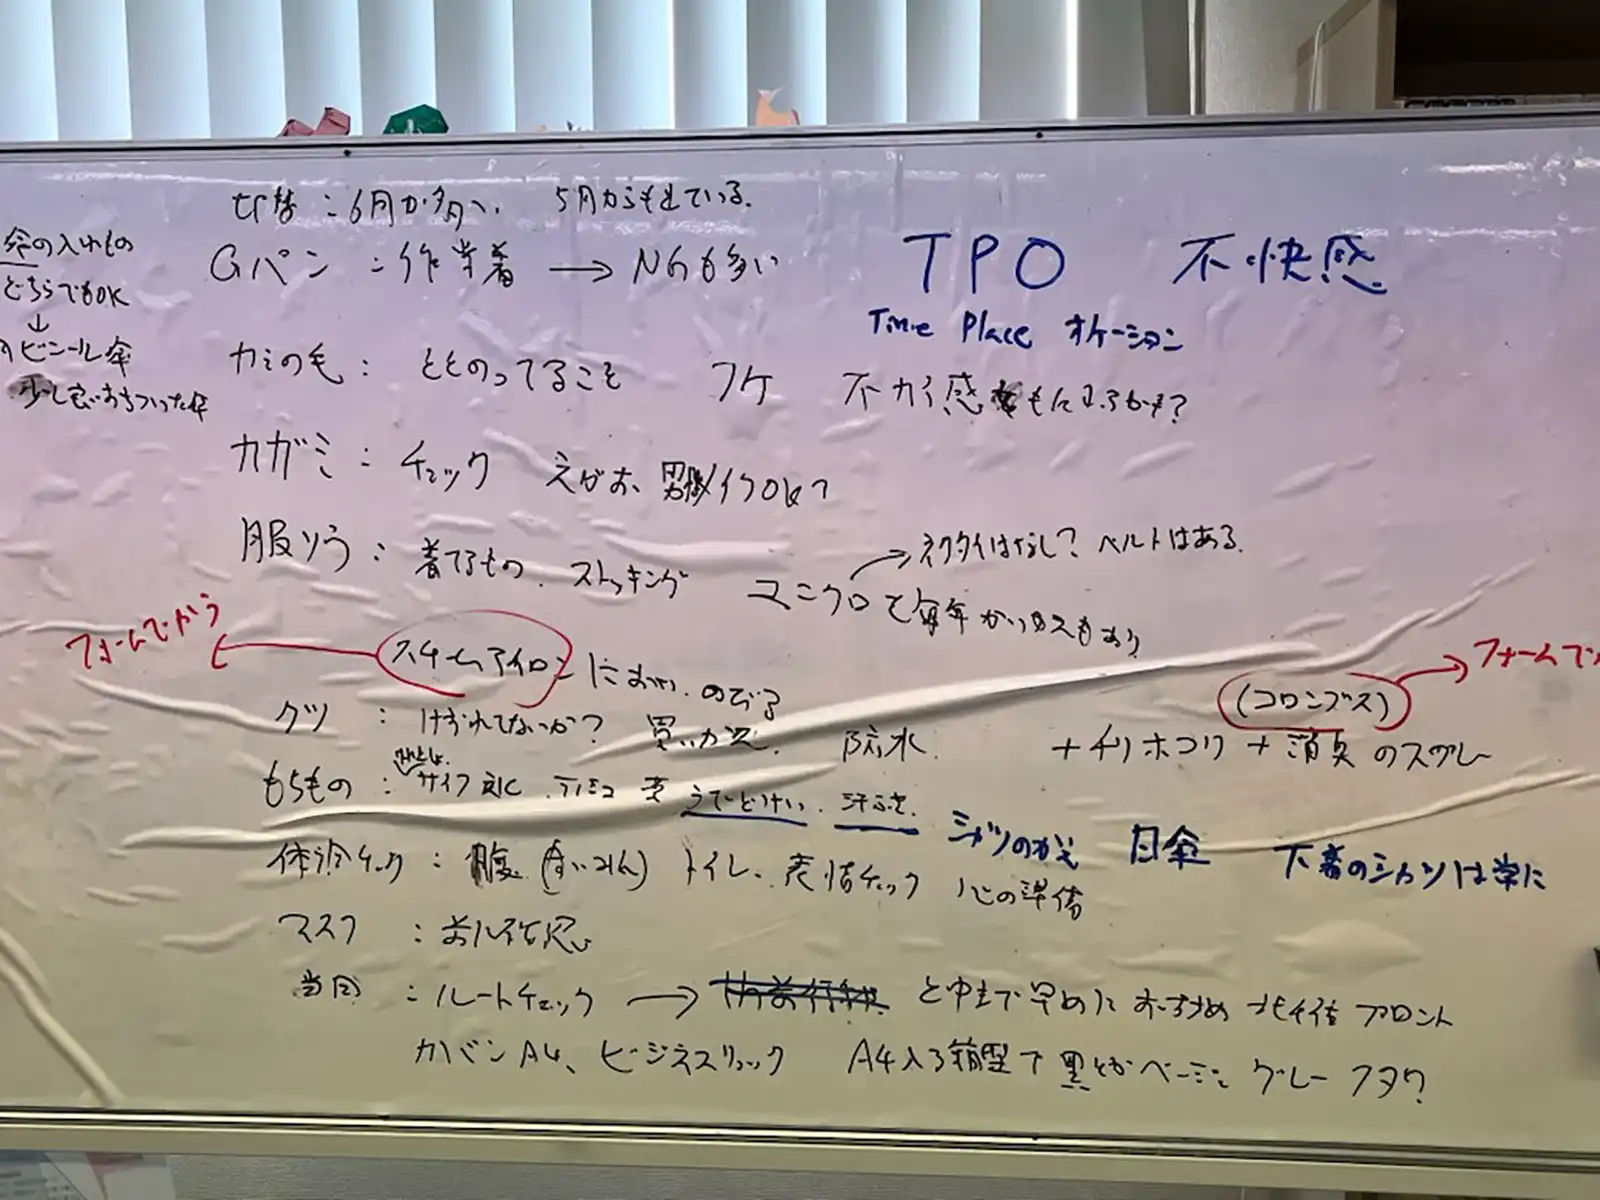 切替：6月が多い、5月からもきている。
Gパン：作業着 → NGも多い
TPO 不快感
Time Place オケーション
傘の入れもの
どちらでもOK
↓
ビニール傘
少し良い おちついた傘
カミの毛： ととのってること フケ 不カイ感
カガミ：チェック えがお、
服ソウ：着てるもの、ストッキング
ユニクロで毎年かいかえもあり
→ネクタイはなし？ ベルトはある。
フォームでかう
スチームアイロン におい、のびる
クツ ：けがれてないか？ 買いかえ、 防水
(コロンブス)
フォームで
＋チリホコリ＋消臭のスプレー
もちもの ： サイフ うでどけい、汗ふき、シャツのかえ 日傘 下着のシャツは常に
体 チェック ：腹（すいみん）トイレ、表情チェック 心の準備
マスク ：
当日 ：ルートチェック → と中まで早めに おすすめ 北千住 フロント
カバンA4、ビジネスリック A4入る箱型で黒とかベージュ グレー フタツ？